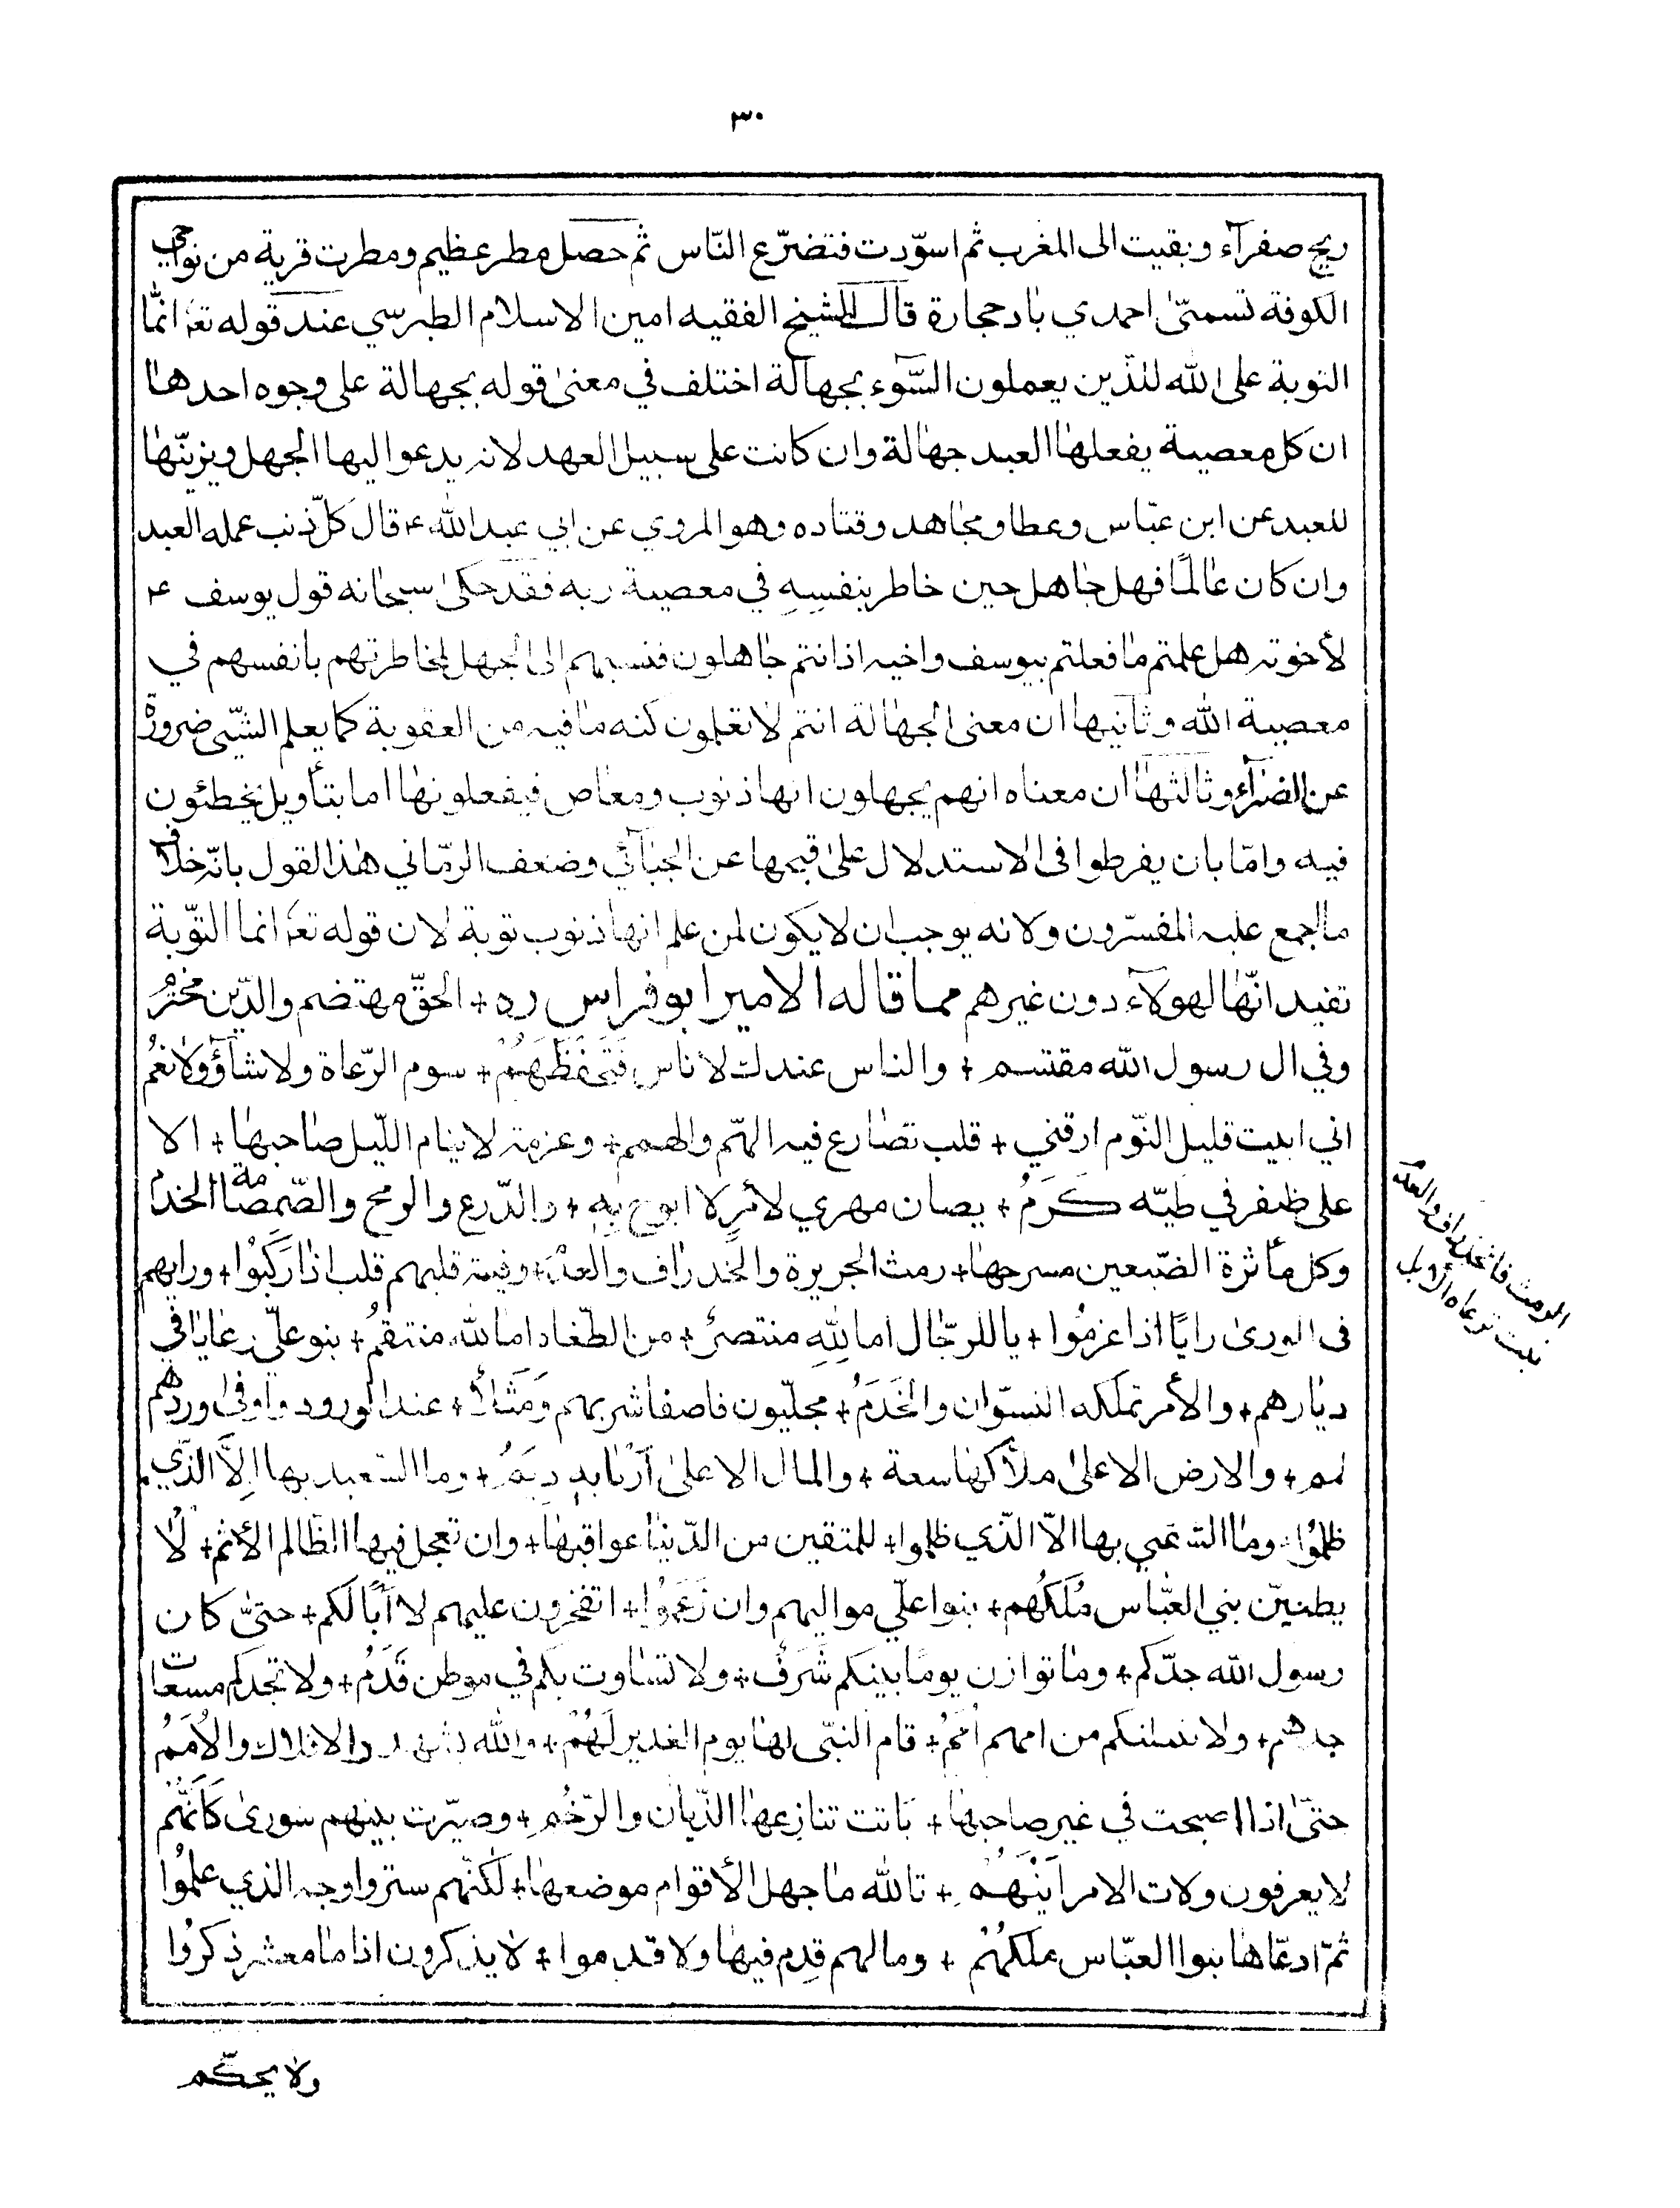 ٣٠
ريح صفرآء وبقيت الى المغرب ثم اسوّدت فتضرّع النّاس ثم حصل مطر عظيم ومطرت قرية من نواحي
الكوفة تسمىّ احمدي باد حجارة قال الشيخ الفقيه امين الاسلام الطبرسي عند قوله تعه انمّا
التوبة على الله للذّين يعملون السّوء بجهالة اختلف في معنى قوله بجهالة على وجوه احدها
ان كل معصية يفعلها العبد جهالة وان كانت على سبيل العهد لانه يدعو اليها الجهل ويزيّنها
للعبد عن ابن عبّاس وعطا ومجاهد وقتاده وهو المروي عن ابي عبد الله ع قال كلّ ذنب عمله العبد
وان كان عالمًا فهل جاهل حين خاطر بنفسِهِ في معصية ربه فقد حكى سبحانه قول يوسف ع
لأخوته هل علمتم ما فعلتم بيوسف واخيه اذ انتم جاهلون فنسبهم الى الجهل لمخاطرتهم بانفسهم في
معصية الله وثانيها ان معنى الجهالة انتم لا تعلمون كنه ما فيه من العقوبة كما يعلم الشّيى ضرورة
عن الضرآء وثالثها ان معناه انهم يجهلون انها ذنوب ومعاص فيفعلونها اما بتأويل يخطئون
فيه وامّا بان يفرطوا فى الاستدلال على قبحها عن الجبآئي وضعف الرمّاني هذا القول بانّه خلاف
ما اجمع عليه المفسّرون ولانه يوجب ان لا يكون لمن علم انها ذنوب توبة لان قوله تعه انما التّوبة
تفيد انّها لهولآء دون غيرهم مما قاله الامير ابو فراس ره + الحقّ مهتضم والدّين مخترم
وفي ال رسول الله مقتسم + والناس عندك لا ناس فَتَحْفَظَهُمْ + سوم الرّعاة ولا شآؤٌ ولا نعُم
اني ابيت قليل النّوم ارقني + قلب تصارع فيه الهّم والهمم + وعزمة لا ينام اللّيل صاحبها + الا
على ظفر في طيّه كَرَمُ + يصان مهري لأمرٍ لا ابوح بِهِ + والدّرع والرمح والصّمصامة الخذم
وكل مأثرة الضّبعين مسرحها + رمث الجزيرة والخذراف والعنَمُ + وفيتة قلبهم قلب اذا رَكَبُوا + ورايهم
فى الورى رايًا اذا عزمُوا + يا للرجّال اما لِلهِ منتصرٌ + من الطّغاة اما لله منتقمُ + بنو عليّ رعايا في
ديارهم + والأمر تملكه النسّوان والخَدَمُ + مجلّيون فاصفا شربهم وَشَلٌ + عند الورود واوفى وردهم
لمم + والارض الا على ملاّكها سعة + والمال الا على اَرْبابهِ دِيَمُ + وما السّعيد بها اِلاَّ الذّي
ظلمُوا + وما الشّقي بها الاّ الذّي ظلموا + للمتقين من الدّنيا عواقبها + وان تعجل فيها الظّالم الأثم + لا
يطغينّ بني العبّاس مُلكُهم + بنوا عليّ مواليهم وان زَعَمُوا + اتفخرون عليهم لا اَبًا لكم + حتىّ كان
رسول الله جدّكم + وما توازن يومًا بينكم شَرَفٌ + ولا تساوت بكم في موطن قَدَمُ + ولا تجدكم مسعات
جدهم + ولا نسلتكم من امهم اَمَمُ + قام النبّى لها يوم الغدير لَهُمْ + والله يشهد والاملاك والأُمَمُ
حتىّ اذا اصبحت في غير صاحبها + بَاتت تنازِعها الذّيان والرّخُم + وصيّرت بينهم شورى كَاَنَّهُم
لا يعرفون ولات الامر اَيْنَهُم + تالله ما جهل الأقوام موضعها + لكنّهم ستروا وجه الذي علمُوا
ثمّ ادعّاها بنوا العبّاس ملكهُمْ + وما لهم قدم فيها ولا قدموا + لا يذكرون اذا ما معشر ذكروا
ولا يحكّم
الرمث فالخذراف والعنم
نبت ترعاه الأبل